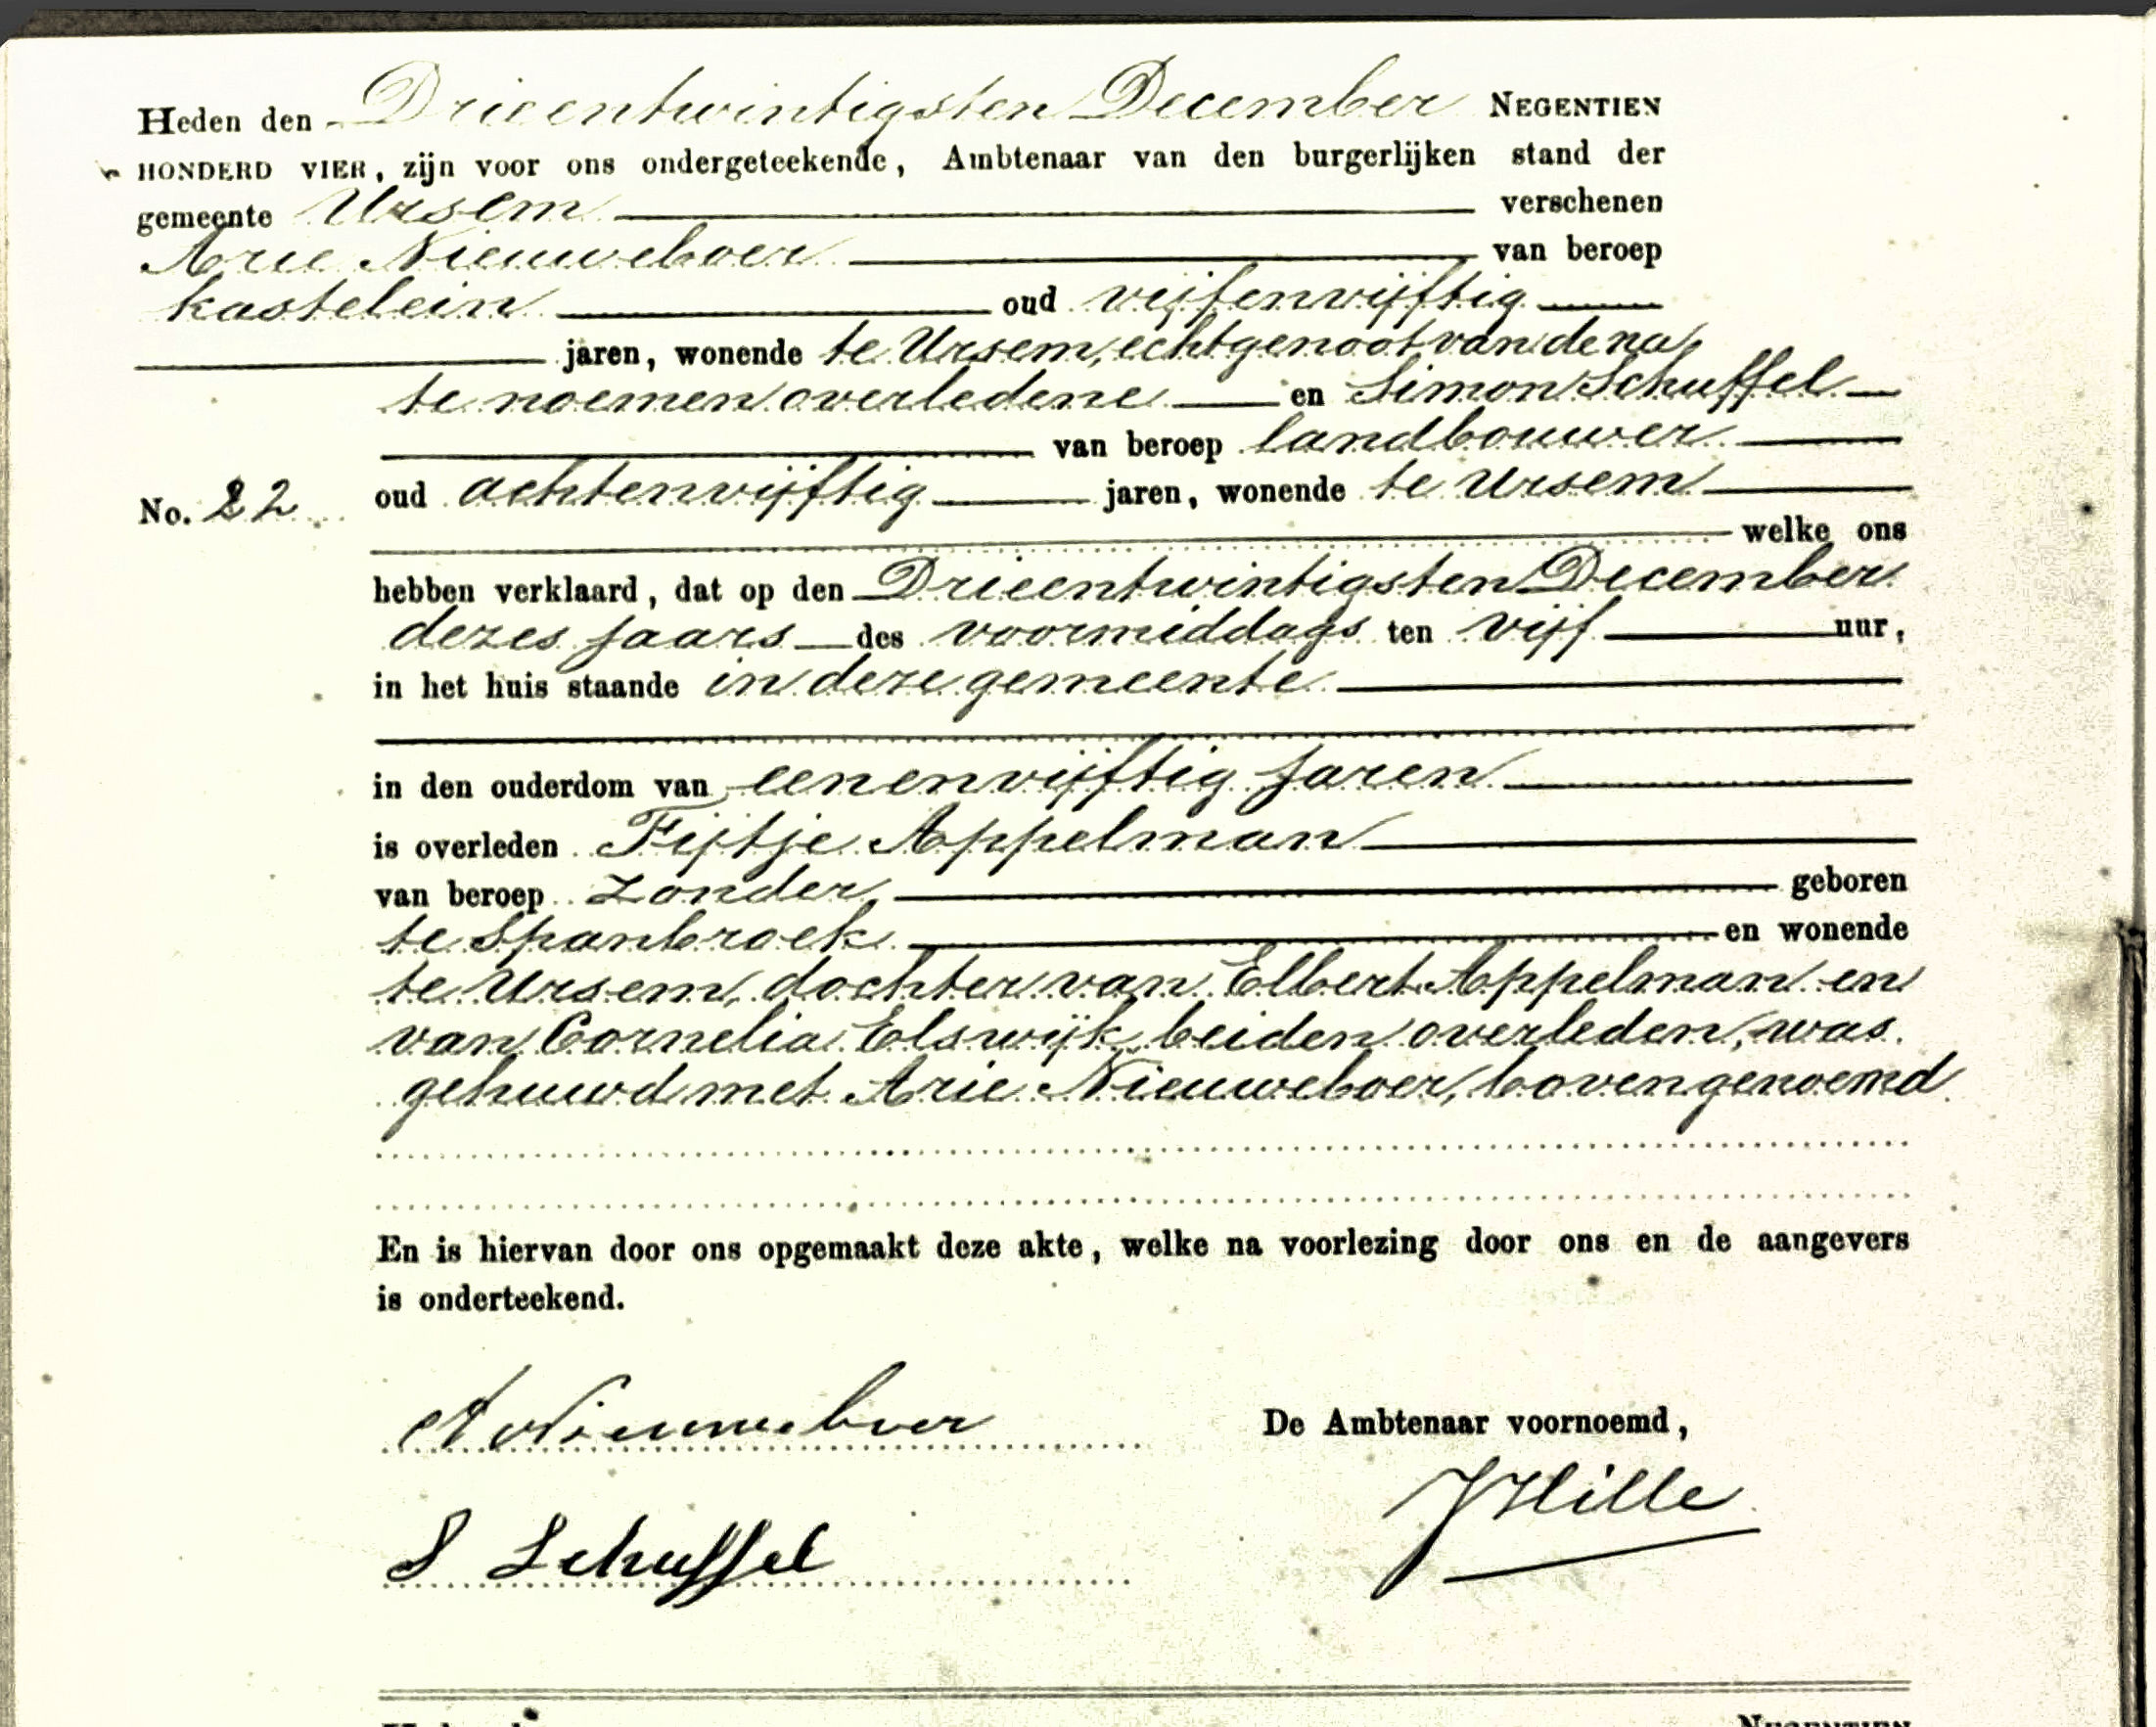 Heden den Drieentwintigsten December NEGENTIEN
HONDERD VIER, zijn voor ons ondergeteekende, Ambtenaar van den burgerlijken stand der
gemeente Ursem verschenen
Arie Nieuweboer van beroep
kastelein oud vijfenvijftig
jaren, wonende te Ursem, echtgenoot van de na
te noemen overledene en Simon Schuffel
van beroep landbouwer
No. 22 oud achtenvijftig jaren, wonende te Ursem
welke ons
hebben verklaard, dat op den Drieentwintigsten December
dezes jaars des voormiddags ten vijf uur,
in het huis staande in deze gemeente
in den ouderdom van eenenvijftig jaren
is overleden Fijtje Appelman
van beroep zonder geboren
te Spanbroek en wonende
te Ursem, dochter van Elbert Appelman en
van Cornelia Elswijk, beiden overleden, was
gehuwd met Arie Nieuweboer, bovengenoemd.
En is hiervan door ons opgemaakt deze akte, welke na voorlezing door ons en de aangevers
is onderteekend.
A Nieuweboer
De Ambtenaar voornoemd,
JHille
S Schuffel
NEGENTIEN